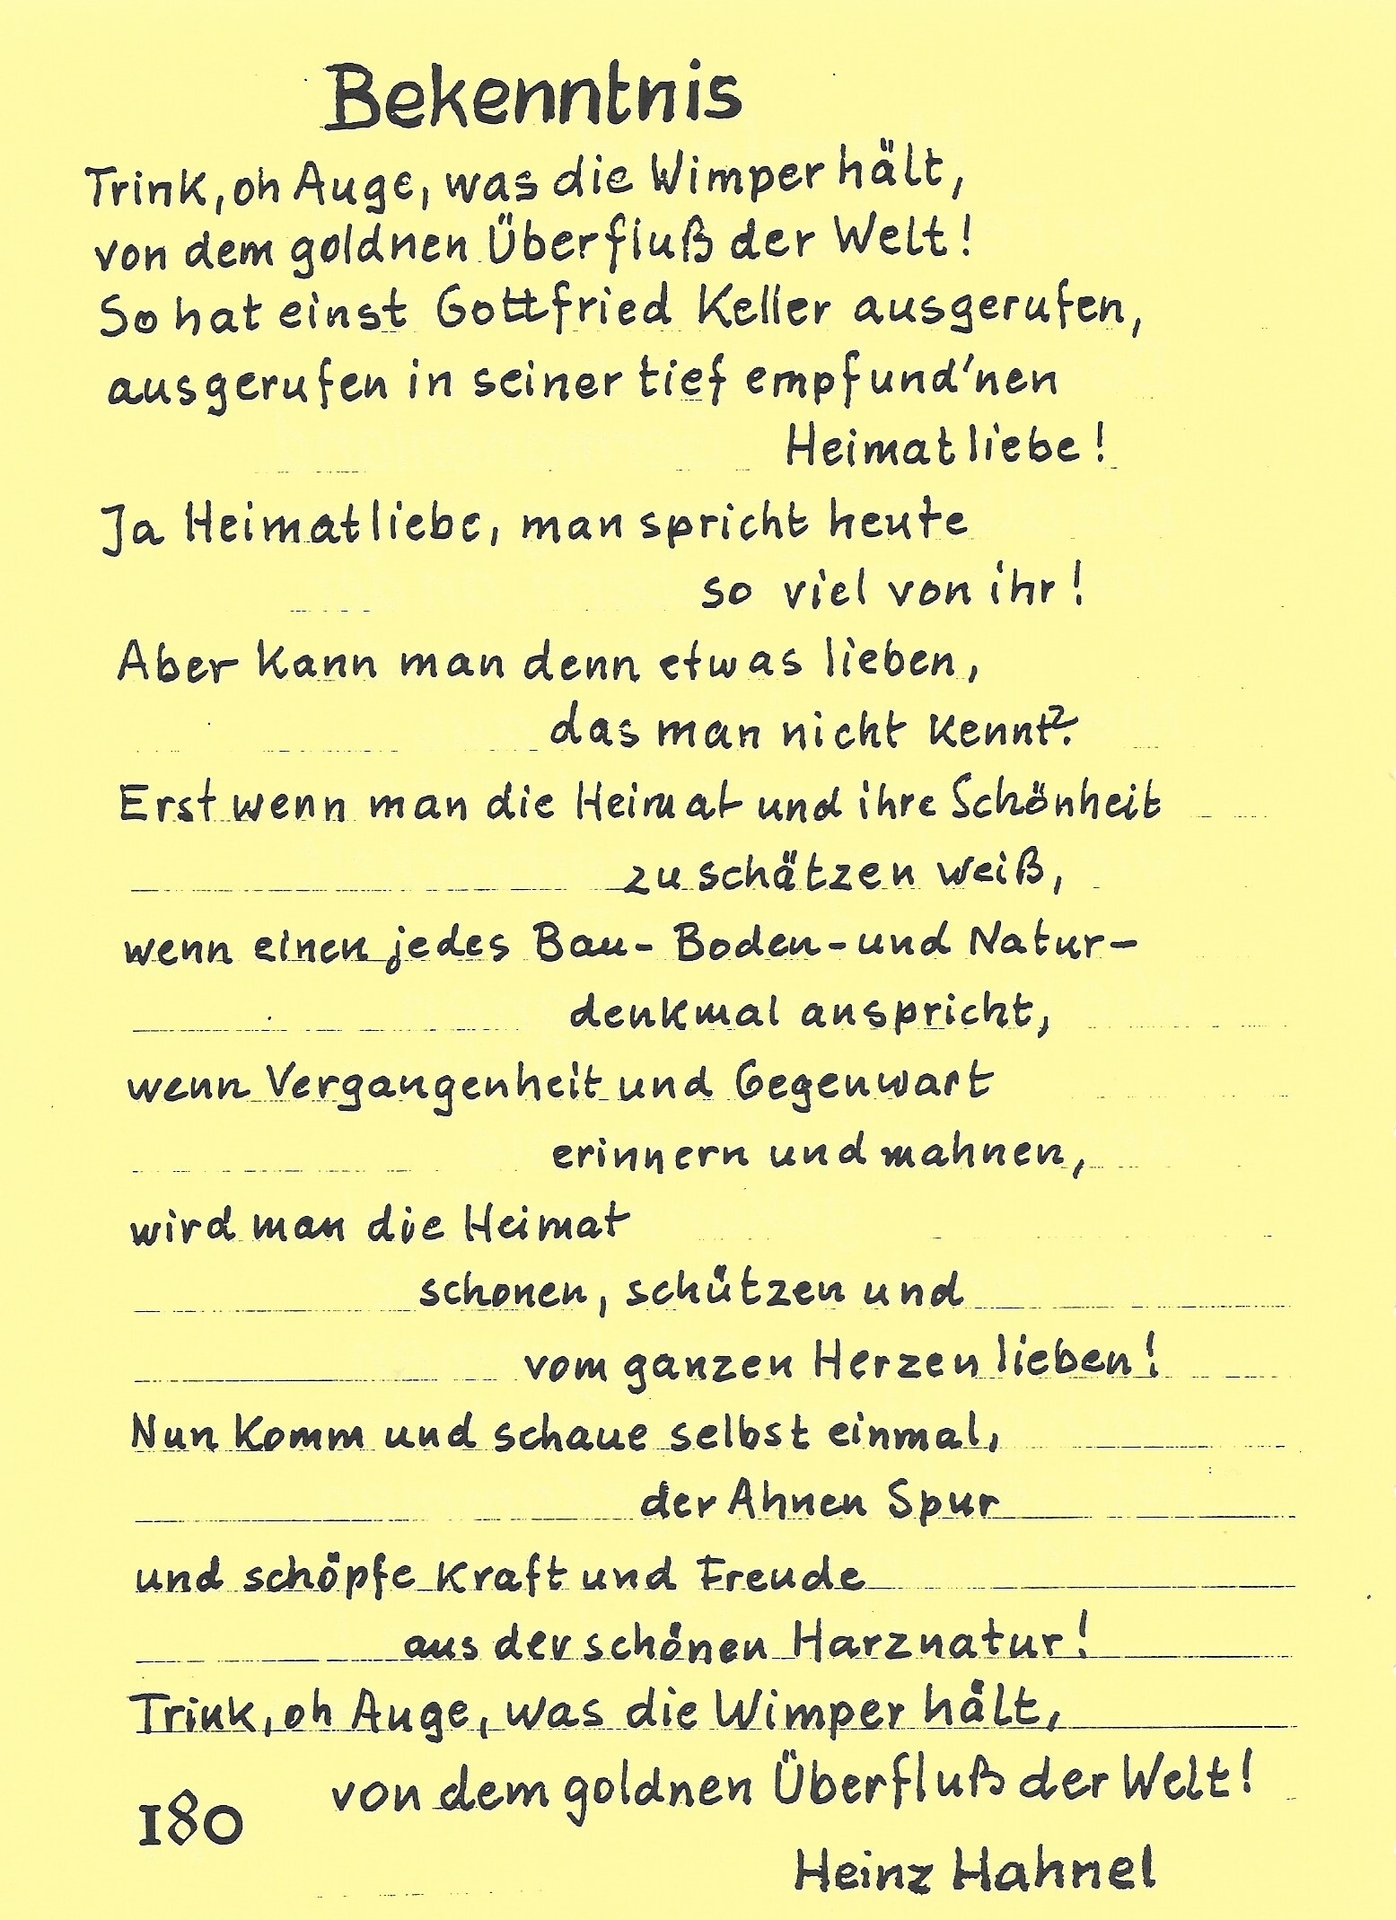 Bekenntnis
Trink, oh Auge, was die Wimper hält,
von dem goldnen Überfluß der Welt!
So hat einst Gottfried Keller ausgerufen,
ausgerufen in seiner tief empfund'nen
Heimatliebe!
Ja Heimatliebe, man spricht heute
so viel von ihr!
Aber kann man denn etwas lieben,
das man nicht kennt?
Erst wenn man die Heimat und ihre Schönheit
zu schätzen weiß,
wenn einen jedes Bau- Boden- und Natur-
denkmal anspricht,
wenn Vergangenheit und Gegenwart
erinnern und mahnen,
wird man die Heimat
schonen, schützen und
vom ganzen Herzen lieben!
Nun komm und schaue selbst einmal,
der Ahnen Spur
und schöpfe Kraft und Freude
aus der schönen Harznatur!
Trink, oh Auge, was die Wimper hält,
von dem goldnen Überfluß der Welt!
180
Heinz Hahnel